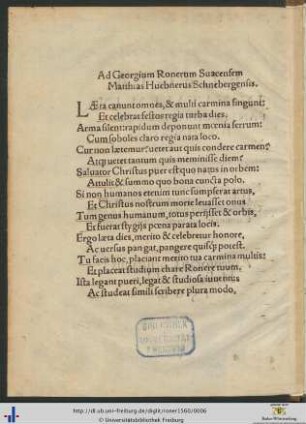 Ad Georgium Ronerum Suacensem
Matthias Huebnerus Schnebergensis.
LÆta canunt omnes, & multi carmina fingunt:
Et celebrat festos regia turba dies,
Arma silent: rapidum deponunt mœnia ferrum:
Cum soboles claro regia nata loco.
Cur non lætemur? uetet aut quis condere carmen?
Atque uetet tantum quis meminisse diem?
Saluator Christus puer est quo natus in orbem:
Attulit & summo quo bona cuncta polo.
Si non humanos etenim tunc sumpserat artus,
Et Christus nostrum morte leuasset onus
Tum genus humanum, totus perijsset & orbis,
Et fuerat stygijs pœna parata locis.
Ergo læta dies, merito & celebretur honore,
Ac uersus pangat, pangere quisque potest.
Tu facis hoc, placiunt merito tua carmina multis:
Et placeat studium chare Ronere tuum.
Ista legant pueri, legat & studiosa iuuentus
Ac studeat simili scribere plura modo,
http://dl.ub.uni-freiburg.de/diglit/roner1560/0006
© Universitätsbibliothek Freiburg
Baden-Württemberg